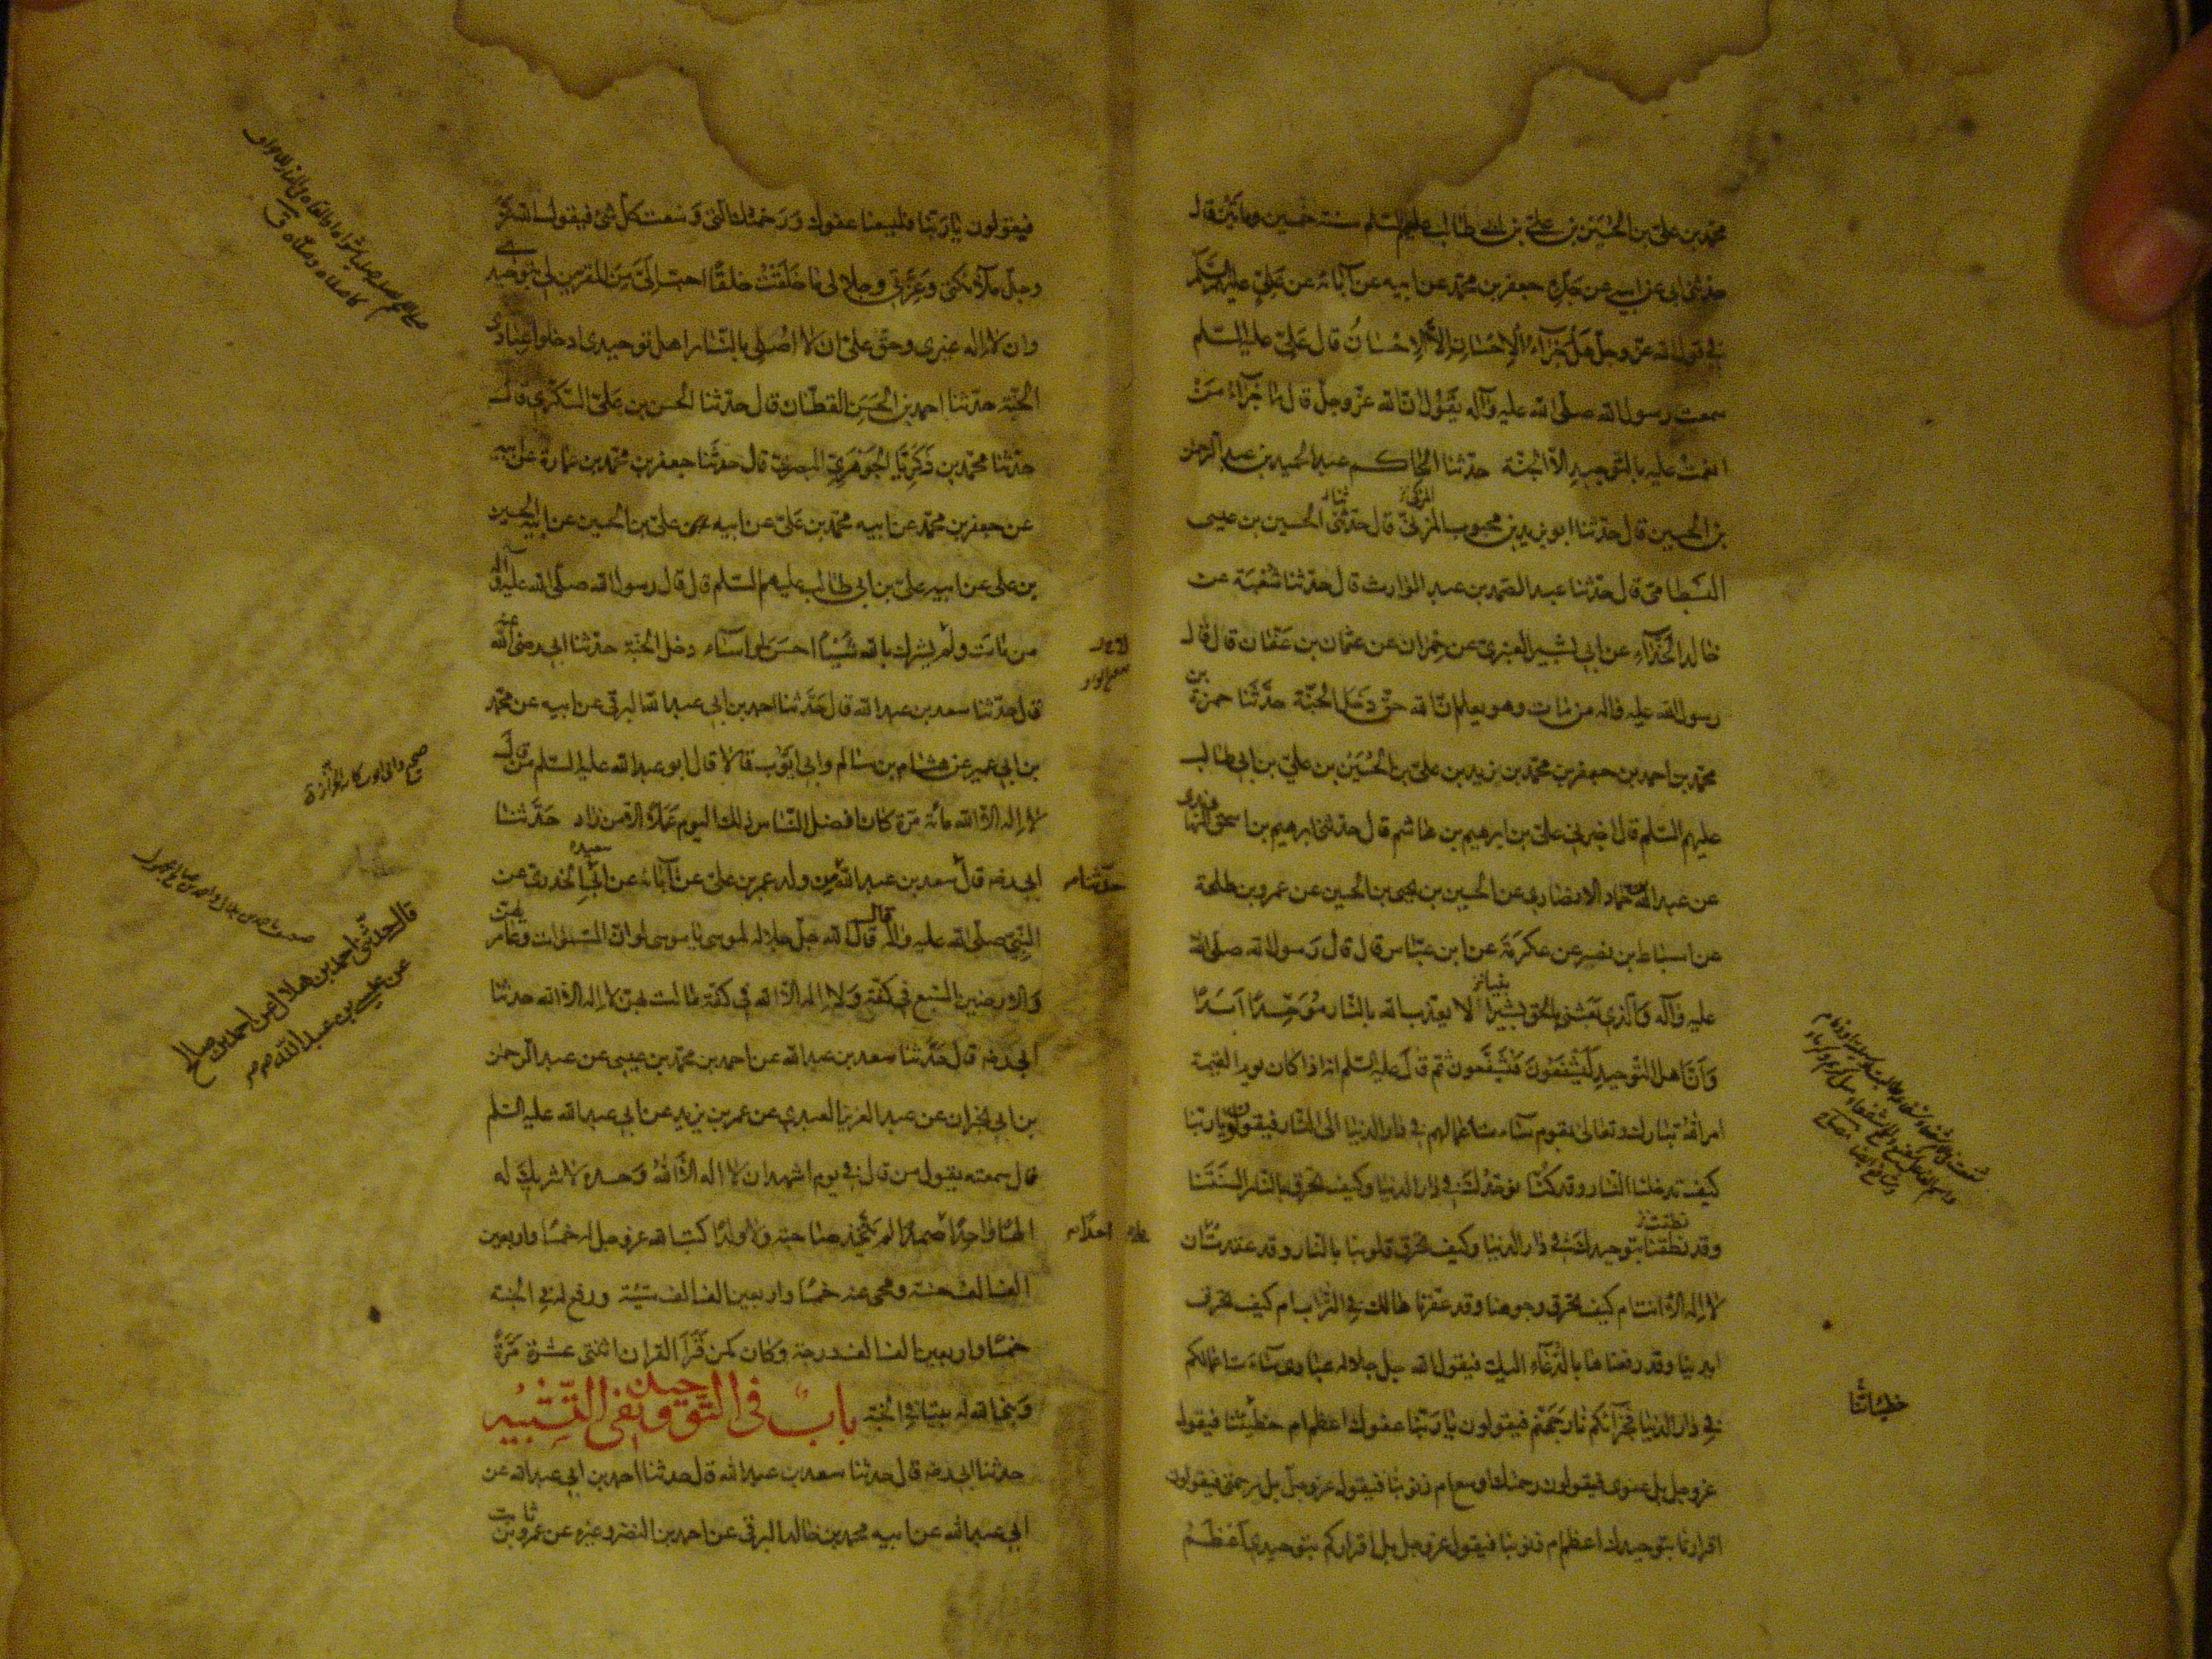 محمد بن علي بن الحسين بن علي بن ابي طالب عليهم السلم سنة خمسين ومأتين قال
حدثني ابي عن ابيه عن جده جعفر بن محمد عن ابيه عن آبائه عن علي عليهم السلم
في قول الله عز وجل هل جزاء الإحسان إلا الإحسان قال علي عليه السلم
سمعت رسول الله صلى الله عليه وآله يقول ان الله عز وجل قال ما جزاء من
انعمت عليه بالتوحيد الا الجنة حدثنا الحاكم عبد الحميد بن عبد الرحمن
بن الحسين قال حدثنا ابو يزيد بن محبوب المزني قال حدثني الحسين بن عيسى
البسطامي قال حدثنا عبد الصمد بن عبد الوارث قال حدثنا شعبة عن
خالد الحذاء عن ابي بشير العنبري عن حمران عن عثمان بن عفان قال قال
رسول الله عليه واله من مات وهو يعلم ان الله حق دخل الجنة حدثنا حمزة بن
محمد بن احمد بن جعفر بن محمد بن زيد بن علي بن الحسين بن علي بن ابي طالب
عليهم السلم قال اخبرني علي بن ابرهيم بن هاشم قال حدثني ابرهيم بن اسحق النهاوندي
عن عبد الله بن حماد الانصاري عن الحسين بن يحيى بن الحسين عن عمرو بن طلحة
عن اسباط بن نصر عن عكرمة عن ابن عباس قال قال رسول الله صلى الله
عليه وآله والذي بعثني بالحق بشيرا لا يعذب الله بالنار موحدا ابدا
وان اهل التوحيد ليشفعون فيشفعون ثم قال عليه السلم انه اذا كان يوم القيمة
امر الله تبارك وتعالى بقوم ساءت اعمالهم في دار الدنيا الى النار فيقولون يا ربنا
كيف تدخلنا النار وقد كنا نوحدك في دار الدنيا وكيف تحرق بالنار السنتنا
وقد نطقنا بتوحيدك في دار الدنيا وكيف تحرق قلوبنا بالنار وقد عقدت ان
لا اله الا انت ام كيف تحرق وجوهنا وقد عفرناها لك في التراب ام كيف تحرق
ايدينا وقد رفعناها بالدعاء اليك فيقول الله جل جلاله عبادي ساءت اعمالكم
في دار الدنيا فجزاؤكم نار جهنم فيقولون يا ربنا عفوك اعظم ام خطيئتنا فيقول
خطيئاتنا
عز وجل بل عفوي فيقولون رحمتك اوسع ام ذنوبنا فيقول عز وجل بل رحمتي فيقولون
اقرارنا بتوحيدك اعظم ام ذنوبنا فيقول عز وجل بل اقراركم بتوحيدي اعظم
فيقولون يا ربنا فليسعنا عفوك ورحمتك التي وسعت كل شئ فيقول الله عز
وجل ملائكتي وعزتي وجلالي ما خلقت خلقا احب الي من المقرين لي بتوحيدي
وان لا اله غيري وحق علي ان لا اصلي بالنار اهل توحيدي ادخلوا عبادي
الجنة حدثنا احمد بن الحسن القطان قال حدثنا الحسن بن علي السكري قال
حدثنا محمد بن زكريا الجوهري البصري قال حدثنا جعفر بن محمد بن عمارة عن ابيه
عن جعفر بن محمد عن ابيه محمد بن علي عن ابيه علي بن الحسين عن ابيه الحسين
بن علي عن ابيه علي بن ابي طالب عليهم السلم قال قال رسول الله صلى الله عليه وآله
من مات ولم يشرك بالله شيئا احسن او اساء دخل الجنة حدثنا ابي رضي الله عنه
قال حدثنا سعد بن عبد الله قال حدثنا احمد بن ابي عبد الله البرقي عن ابيه عن محمد
بن ابي عمير عن هشام بن سالم وابي ايوب قالا قال ابو عبد الله عليه السلم من قال
لا اله الا الله مائة مرة كان افضل الناس ذلك اليوم عملا الا من زاد حدثنا
ابي رضه قال سعد بن عبد الله من ولد عمر بن علي عن آبائه عن ابي سعيد الخدري عن
قال حدثني احمد بن هلال عن احمد بن صالح
عن عيسى بن عبد الله
النبي صلى الله عليه واله قال قال الله جل جلاله لموسى يا موسى لو ان السموات وعامريهن
والارضين السبع في كفة ولا اله الا الله في كفة مالت بهن لا اله الا الله حدثنا
ابي رضه قال حدثنا سعد بن عبد الله عن احمد بن محمد بن عيسى عن عبد الرحمن
بن ابي نجران عن عبد العزيز العبدي عن عمر بن يزيد عن ابي عبد الله عليه السلم
قال سمعته يقول من قال في يوم اشهد ان لا اله الا الله وحده لا شريك له
الها واحدا صمدا لم يتخذ صاحبة ولا ولدا كتب الله عز وجل له خمسا واربعين
الف الف حسنة ومحى عنه خمسا واربعين الف الف سيئة ورفع له في الجنة
خمسا واربعين الف الف درجة وكان كمن قرأ القران اثنتي عشرة مرة
وبنى الله له بيتا في الجنة باب في التوحيد ونفى التشبيه
حدثنا ابي رضه قال حدثنا سعد بن عبد الله قال حدثنا احمد بن ابي عبد الله عن
ابي عبد الله عن ابيه محمد بن خالد البرقي عن احمد بن النضر وغيره عن عمرو بن ثابت